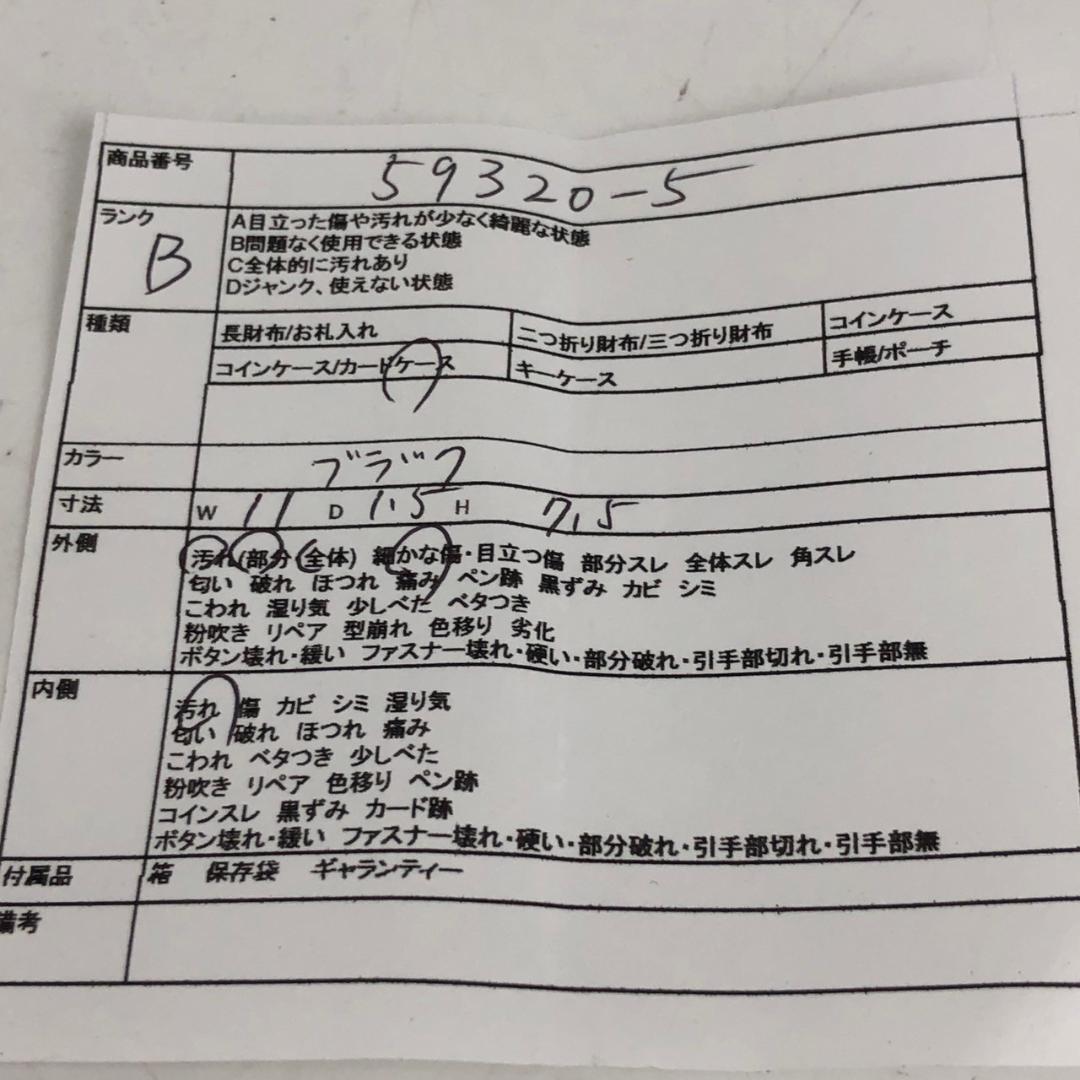 商品番号 59320-5
ランク B
A目立った傷や汚れが少なく綺麗な状態
B問題なく使用できる状態
C全体的に汚れあり
Dジャンク、使えない状態
種類 長財布/お札入れ 二つ折り財布/三つ折り財布 コインケース
コインケース/カードケース キーケース 手帳/ポーチ
カラー ブラック
寸法 W 11 D 1.5 H 7.5
外側 汚れ(部分・全体) 細かな傷・目立つ傷 部分スレ 全体スレ 角スレ
匂い 破れ ほつれ 痛み ペン跡 黒ずみ カビ シミ
こわれ 湿り気 少しべた ベタつき
粉吹き リペア 型崩れ 色移り 劣化
ボタン壊れ・緩い ファスナー壊れ・硬い・部分破れ・引手部切れ・引手部無
内側 汚れ 傷 カビ シミ 湿り気
匂い 破れ ほつれ 痛み
こわれ ベタつき 少しべた
粉吹き リペア 色移り ペン跡
コインスレ 黒ずみ カード跡
ボタン壊れ・緩い ファスナー壊れ・硬い・部分破れ・引手部切れ・引手部無
付属品 箱 保存袋 ギャランティー
備考